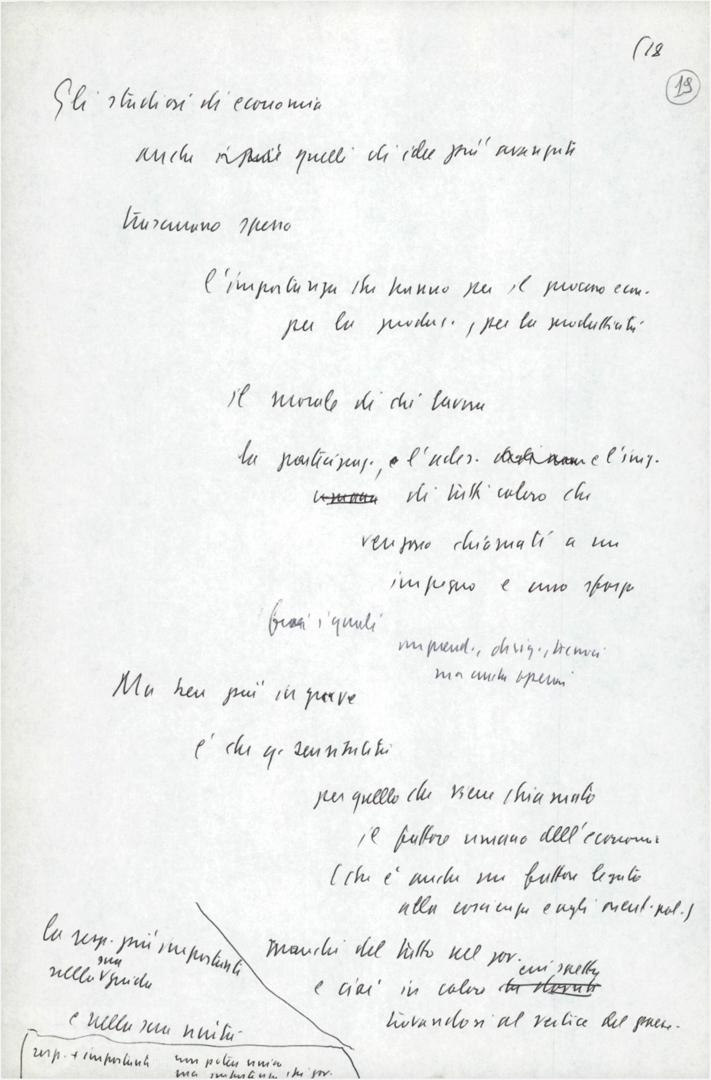 (18
19
Gli studiosi di economia
anche quelli di idee più avanzate
trascurano spesso
l'importanza che hanno per il processo econ.
per la produz., per la produttività
il morale di chi lavora
la partecipaz., e l'ades. e l'imp.
umana di tutti coloro che
vengono chiamati a un
impegno e uno sforzo
fra i quali
imprend., dirig., tecnici
ma anche operai
Ma ben più grave
è che q. sensibilità
per quello che viene chiamato
il fattore umano dell'economia
(che è anche un fattore legato
alla coscienza e agli orient. pol.)
manchi del tutto nel gov.
e cioè in coloro cui spetta
trovandosi al vertice del paese.
la resp. più importanti
nella sua guida
e nella sua unità
resp. + importanti
ma importanza che gov.